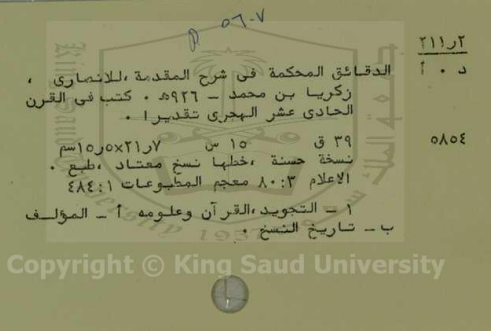 ٥٦٠٧ م
٢١١٫٢
د ٠ أ
الدقائق المحكمة فى شرح المقدمة ،للانصارى ،
زكريا بن محمد - ٩٢٦هـ ٠ كتب فى القرن
الحادى عشر الهجرى تقديرا ٠
٥٨٥٤
٣٩ ق ١٥ س ٢١٫٧×١٥٫٥سم
نسخة حسنة ،خطها نسخ معتاد ،طبع ٠
الاعلام ٨٠:٣ معجم المطبوعات ٤٨٤:١
١ - التجويد ،القرآن وعلومه أ - المؤلف
ب - تاريخ النسخ ٠
Copyright © King Saud University